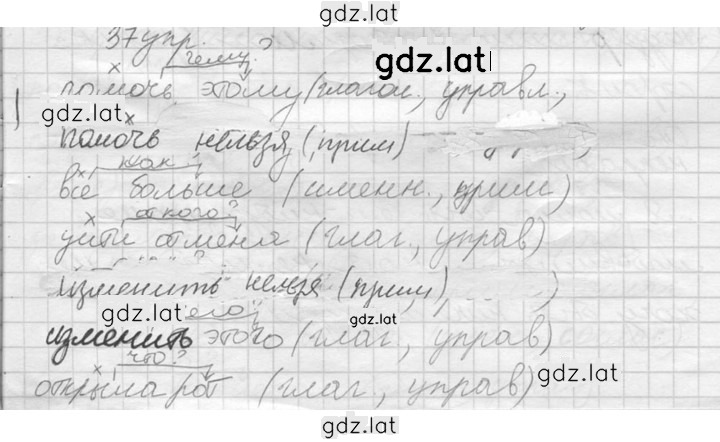 gdz.lat
37упр.
чему?
gdz.lat
помочь этому (глагол., управл.,
gdz.lat
помочь нельзя (прим)
как
всё больше (именн., прим)
от кого?
уйти от меня (глаг., управ)
изменить нельзя (прим)
gdz.lat
его?
gdz.lat
изменить этого (глаг., управ)
что?
gdz.lat
открыла рот (глаг., управ)
gdz.lat